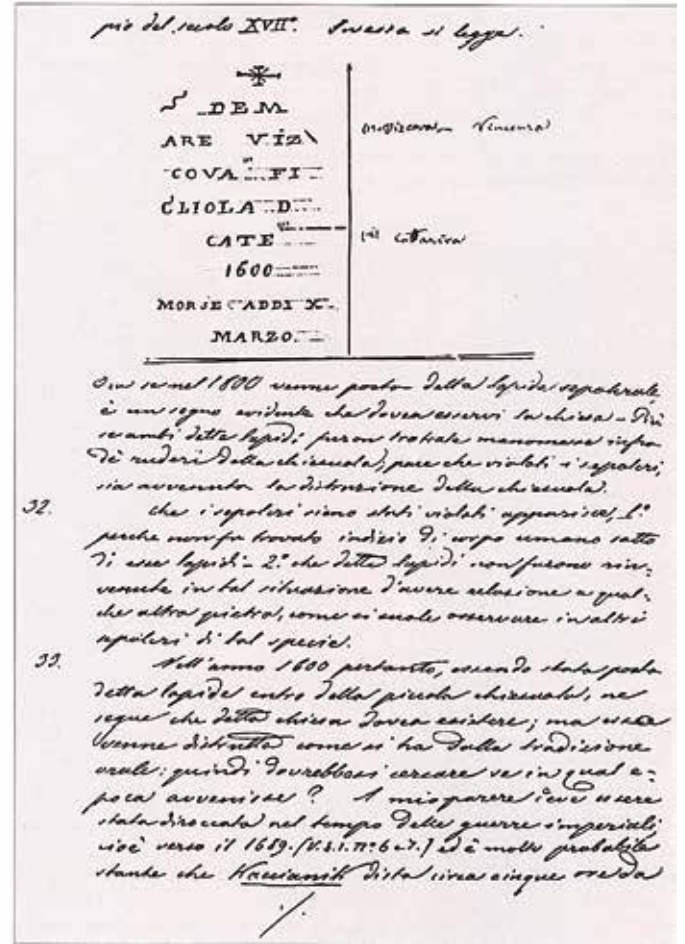 pio del secolo XVIIº. In essa si legge.
DEM
ARE VIZ
COVA FI
GLIOLA D
CATE
1600
MORSE ADDI X
MARZO
Vincenza
Cattarina
Ora se nel 1600 venne posta detta lapide sepolcrale
è un segno evidente che dovea esservi la chiesa - Più
se ambi dette lapidi furon trovate manomesse infra
dè ruderi della chiesuola, pare che violati i sepolcri,
sia avvenuta la distruzione della chiesuola.
32. che i sepolcri sieno stati violati apparisce, 1.º
perche non fu trovato indizio di corpo umano sotto
di esse lapidi - 2.º che dette lapidi non furono rin=
venute in tal situazione d'avere relazione a qual=
che altra pietra, come si suole osservare in altri
sepolcri di tal specie.
33. Nell'anno 1600 pertanto, essendo stata posta
detta lapide entro della piccola chiesuola, ne
segue che detta chiesa dovea esistere; ma essa
venne distrutta come si ha dalla tradizione
orale: quindi dovrebbesi cercare se in qual e=
poca avvenisse? A mio parere deve essere
stata diroccata nel tempo delle guerre imperiali,
cioè verso il 1689. (V.s.i. nº 6 e 7.) ed è molto probabile
stante che Kaccianik dista circa cinque ore da
./.